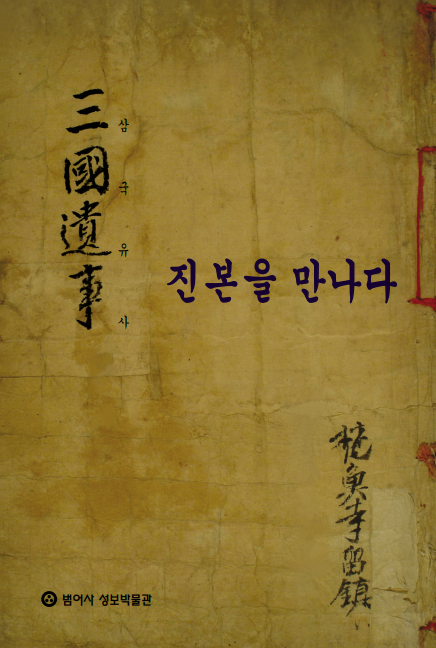 三國遺事
삼국유사
진본을 만나다
梵魚寺留鎭
범어사 성보박물관